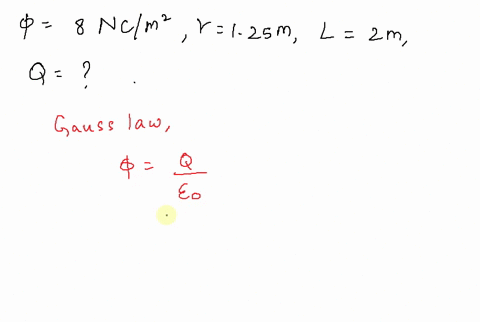 φ = 8 NC/m², r = 1.25m, L = 2m,
Q = ? .
Gauss law,
φ = Q/ε₀